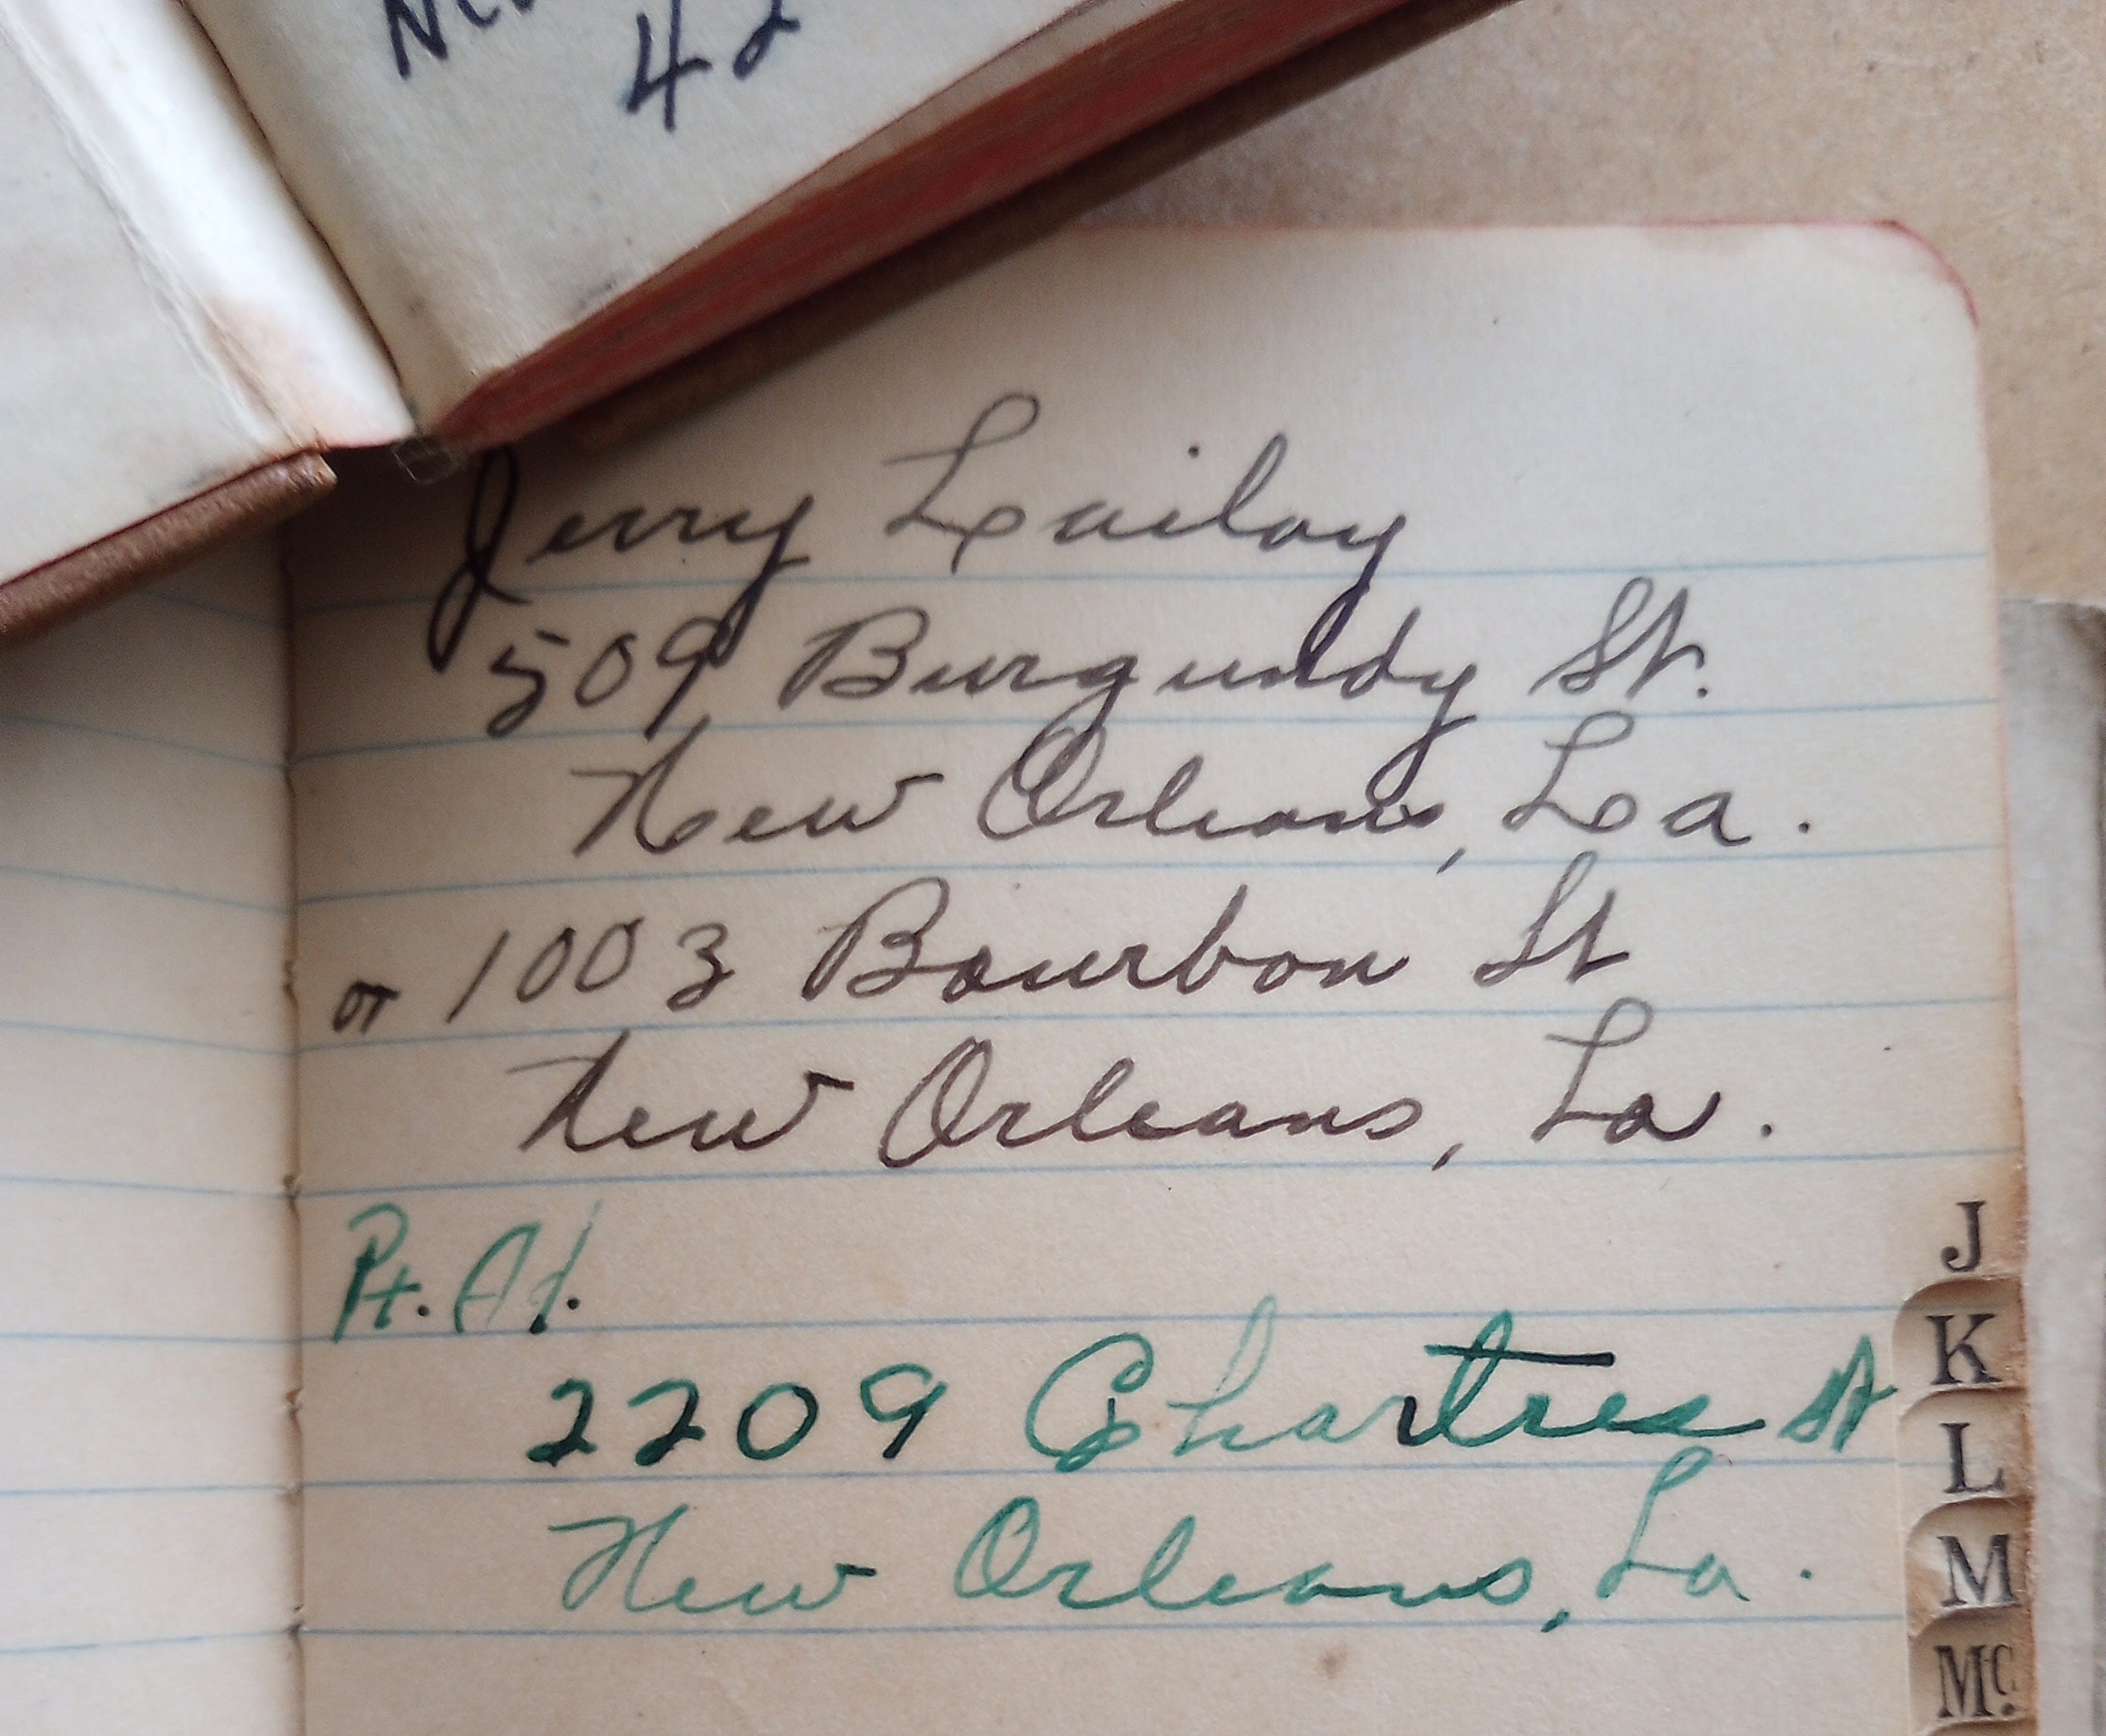 42
Jerry Lailoy
509 Burgundy St.
New Orleans, La.
or 1003 Bourbon St
New Orleans, La.
Pt. Ad.
2209 Chartres St
New Orleans, La.
J
K
L
M
Mc